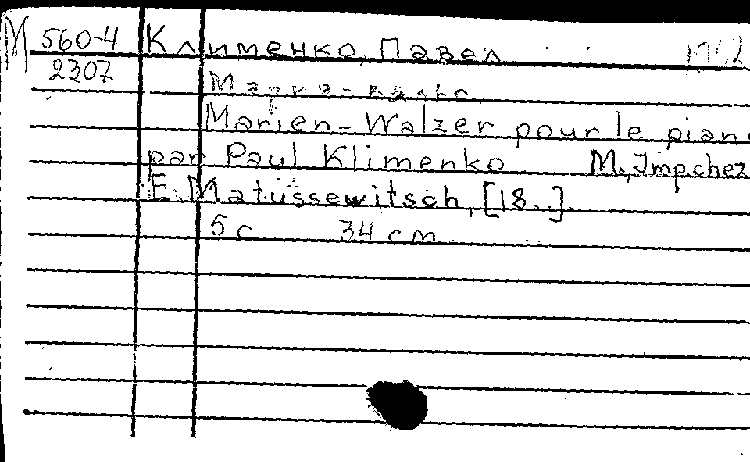 М 560-4 Клименко, Павел
2307
Мария-вальс
Marien-Walzer pour le piano
par Paul Klimenko M., Imp. chez
E. Matussewitsch, [18..]
5 с 34 см